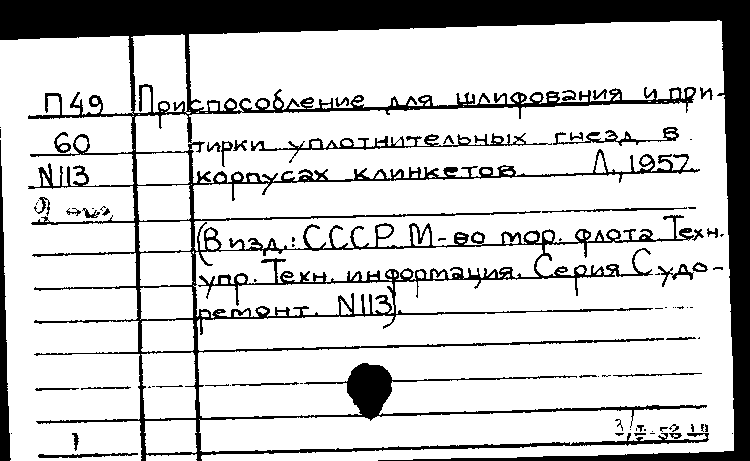 П49 Приспособление для шлифования и при-
60 тирки уплотнительных гнезд в
N113 корпусах клинкетов. Л., 1957.
2 экз
(В изд.: СССР. М-во мор. флота. Техн.
упр. Техн. информация. Серия Судо-
ремонт. N113).
1